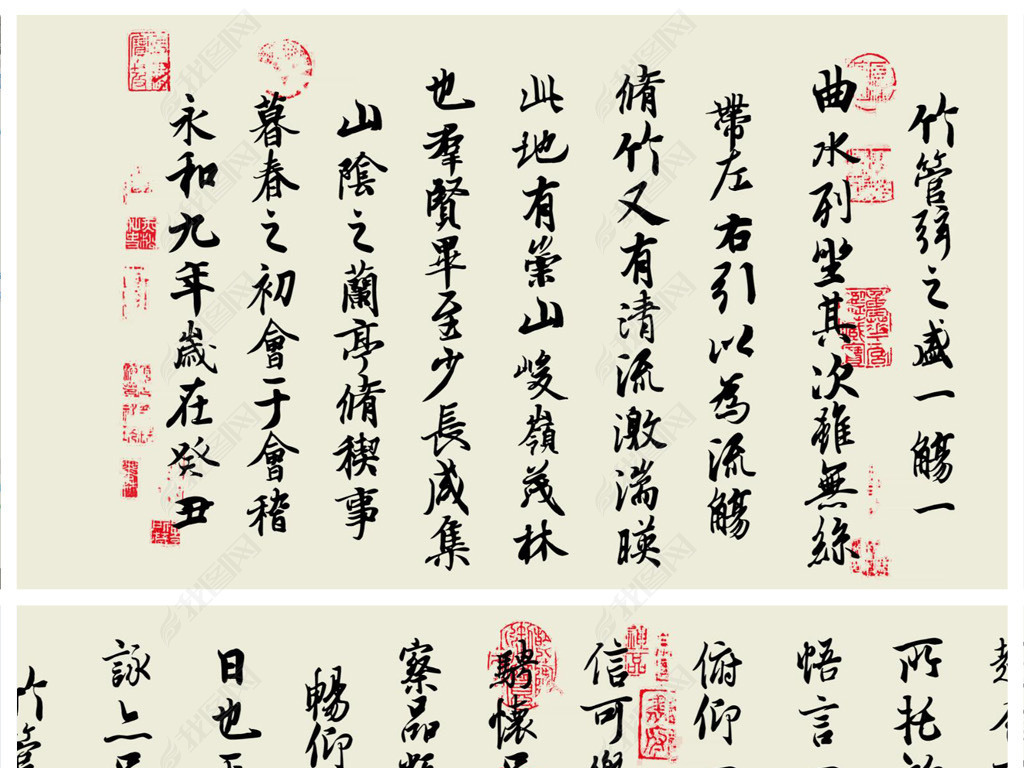 永和九年歲在癸丑
暮春之初會于會稽
山陰之蘭亭脩稧事
也羣賢畢至少長咸集
此地有崇山峻嶺茂林
脩竹又有清流激湍暎
帶左右引以為流觴
曲水列坐其次雖無絲
竹管弦之盛一觴一
竹管
詠亦
日也
暢仰
察品
騁懷
信可
俯仰
悟言
所托